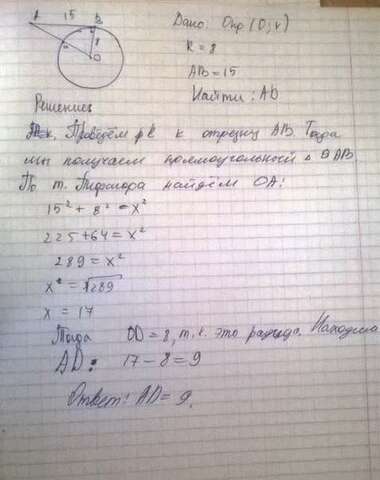 A 15 B
8
O
Дано: Окр (O; r)
R = 8
AB = 15
Найти: AD
Решение:
Проведём к отрезку AB. Тогда
мы получаем прямоугольный Δ
По т. Пифагора найдём OA:
15² + 8² = x²
225 + 64 = x²
289 = x²
x = √289
x = 17
Тогда OD = 8, т.к. это радиус. Находим
AD: 17 - 8 = 9
Ответ: AD = 9.